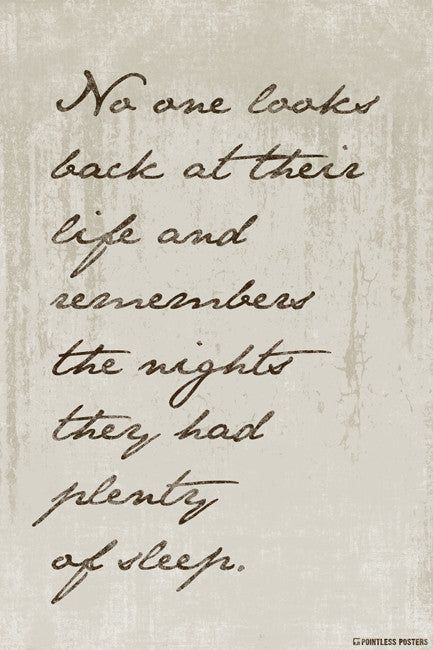 No one looks
back at their
life and
remembers
the nights
they had
plenty
of sleep.
POINTLESS POSTERS